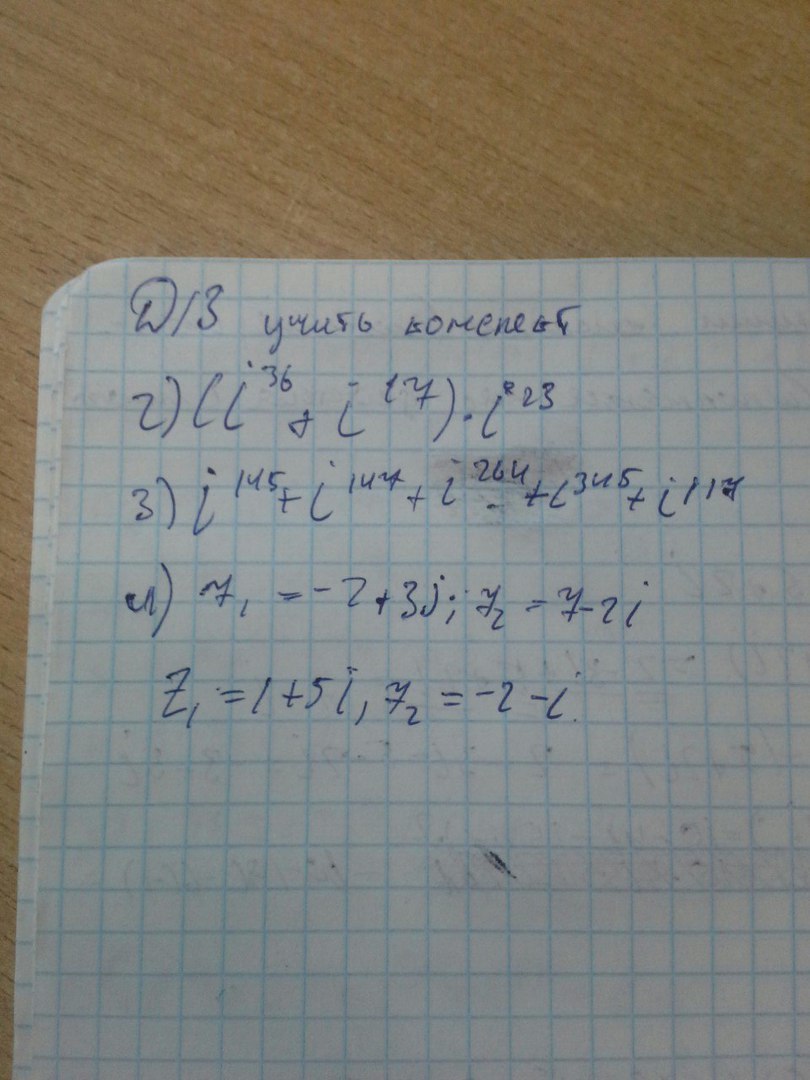 Д/З учить конспект
2) (i³⁶ + i¹⁷) · i²³
3) i¹⁴⁵ + i¹⁴⁷ + i²⁶⁴ + i³⁴⁵ + i¹¹⁷
4) z₁ = -2 + 3i; z₂ = 7 - 2i
z₁ = 1 + 5i, z₂ = -2 - i.